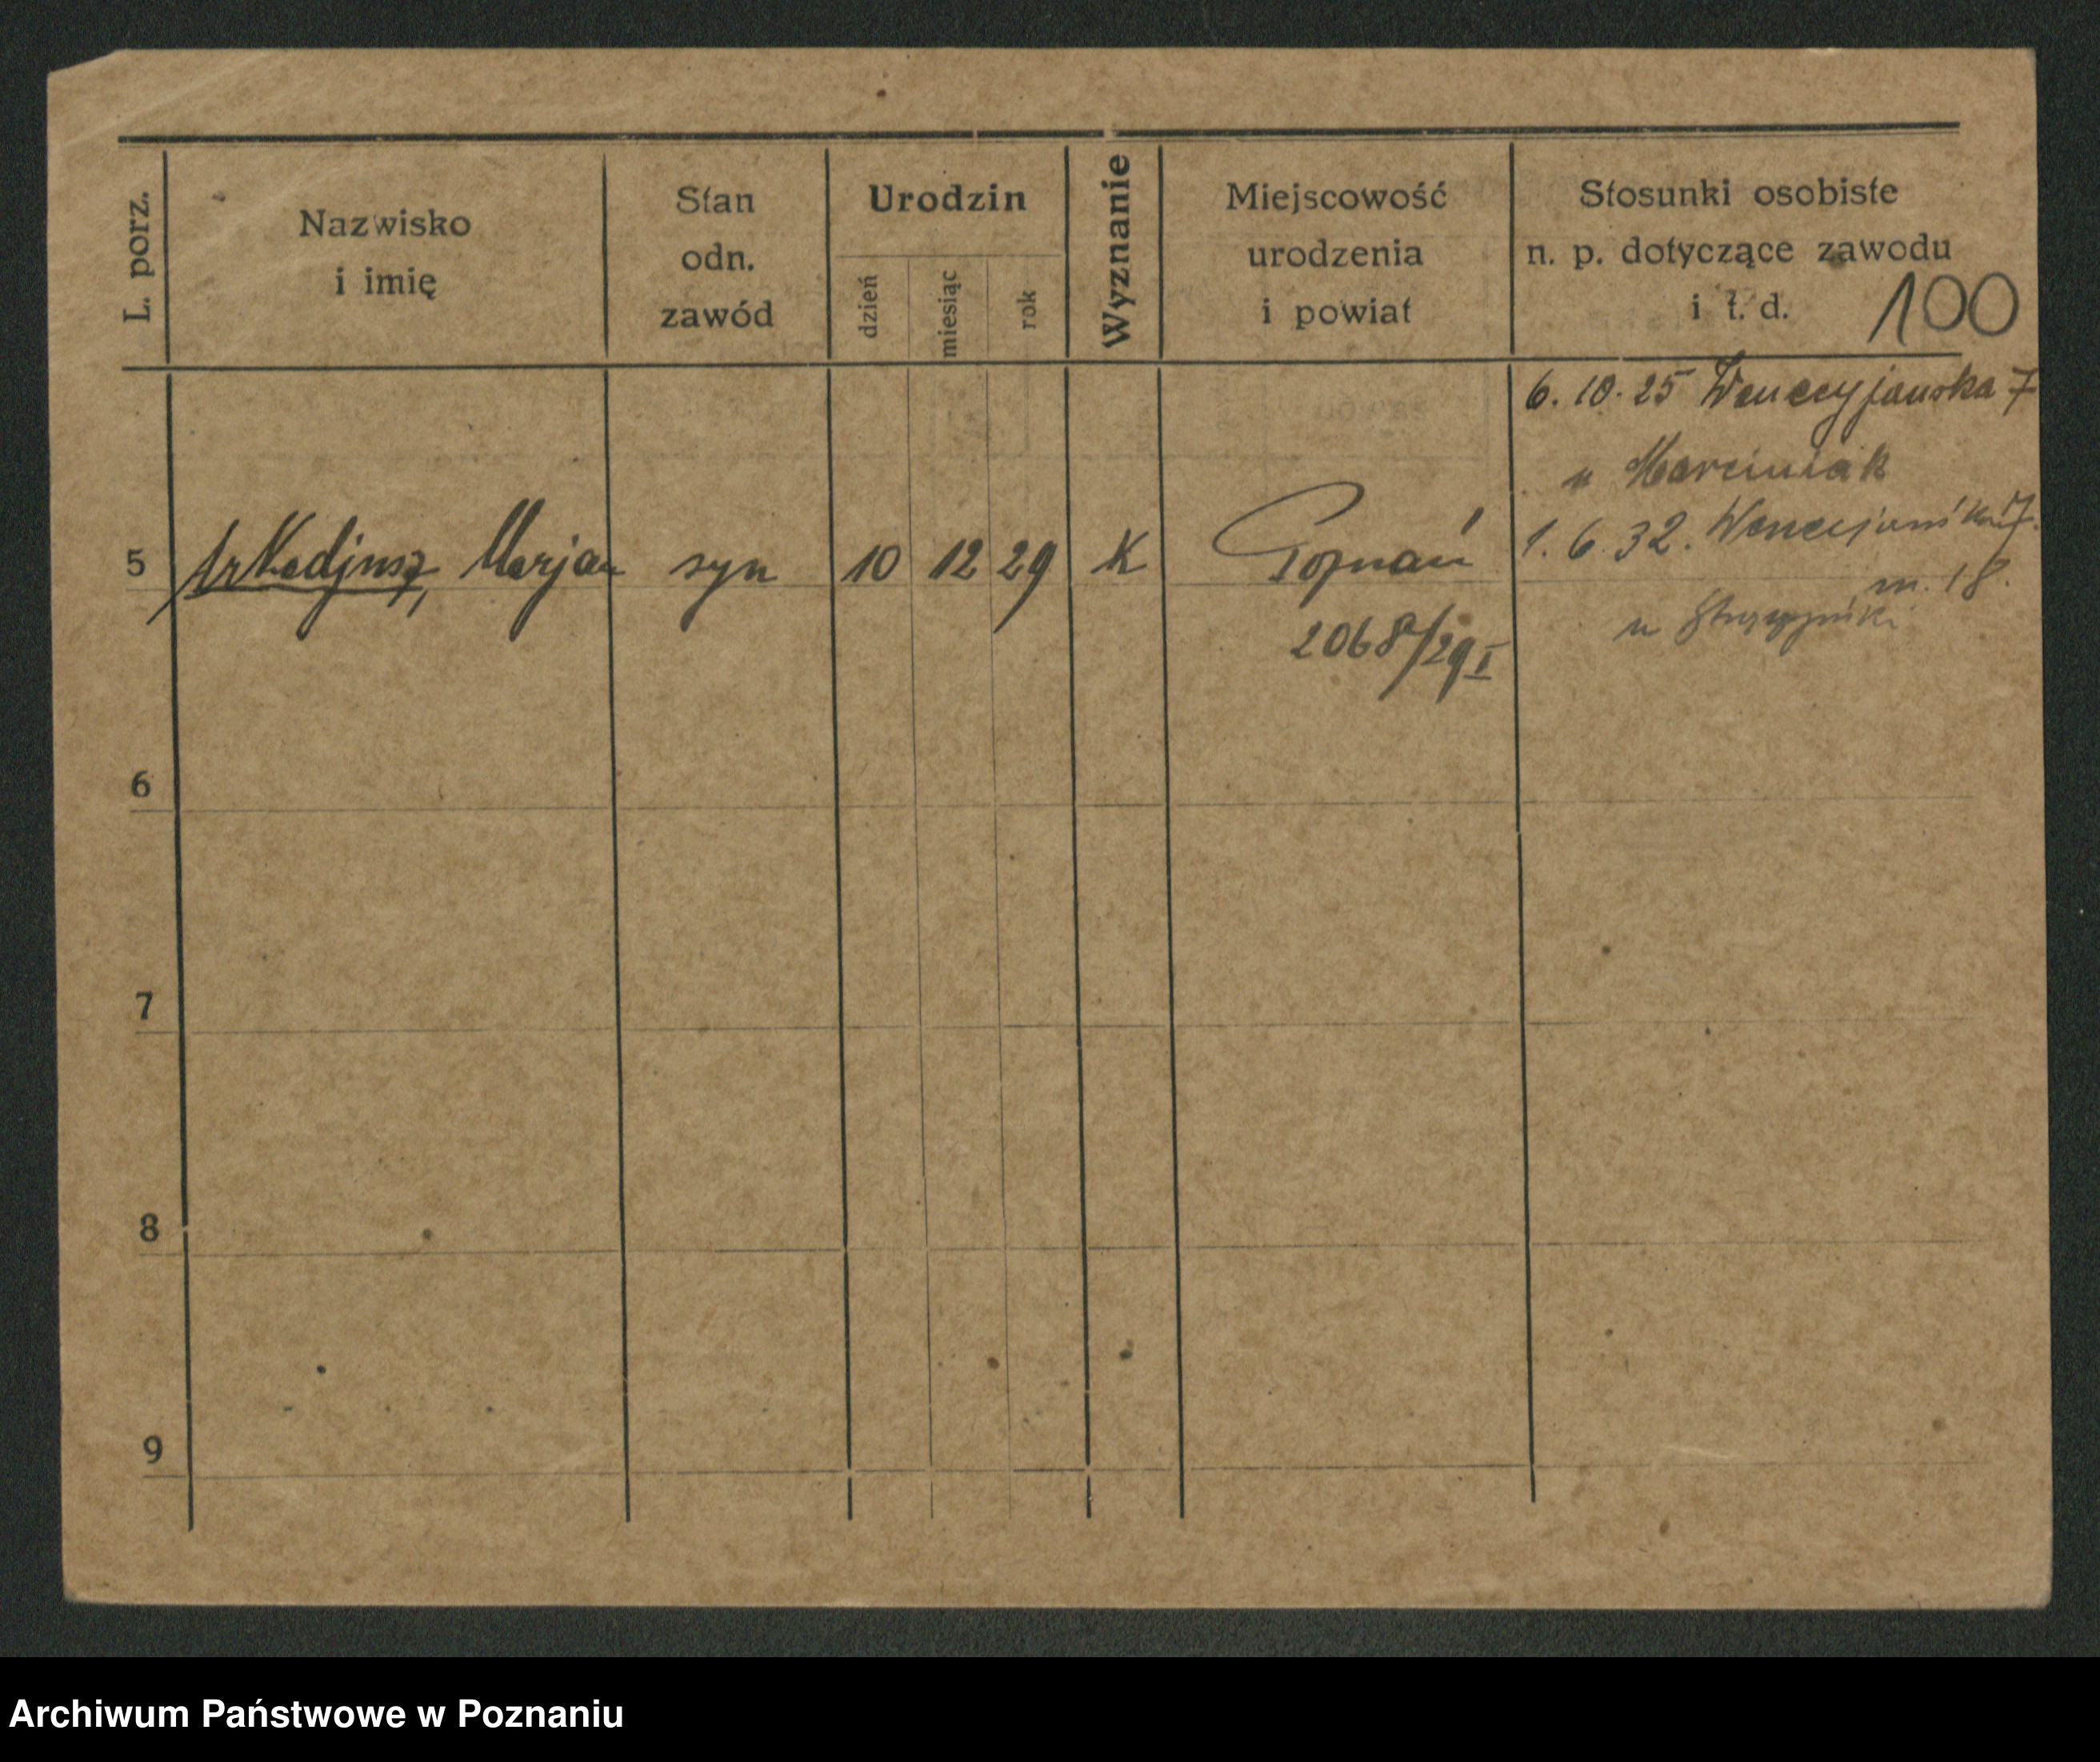 L. porz.
Nazwisko
i imię
Stan
odn.
zawód
Urodzin
dzień
miesiąc
rok
Wyznanie
Miejscowość
urodzenia
i powiat
Stosunki osobiste
n. p. dotyczące zawodu
i t. d.
100
6. 10. 25 Wenecyjanska 7
u Marciniak
1. 6. 32. Wenecjańska 7.
m. 18.
u
5 Arkadjusz, Marjan syn 10 12 29 K Poznań
2068/29 I
6
7
8
9
Archiwum Państwowe w Poznaniu